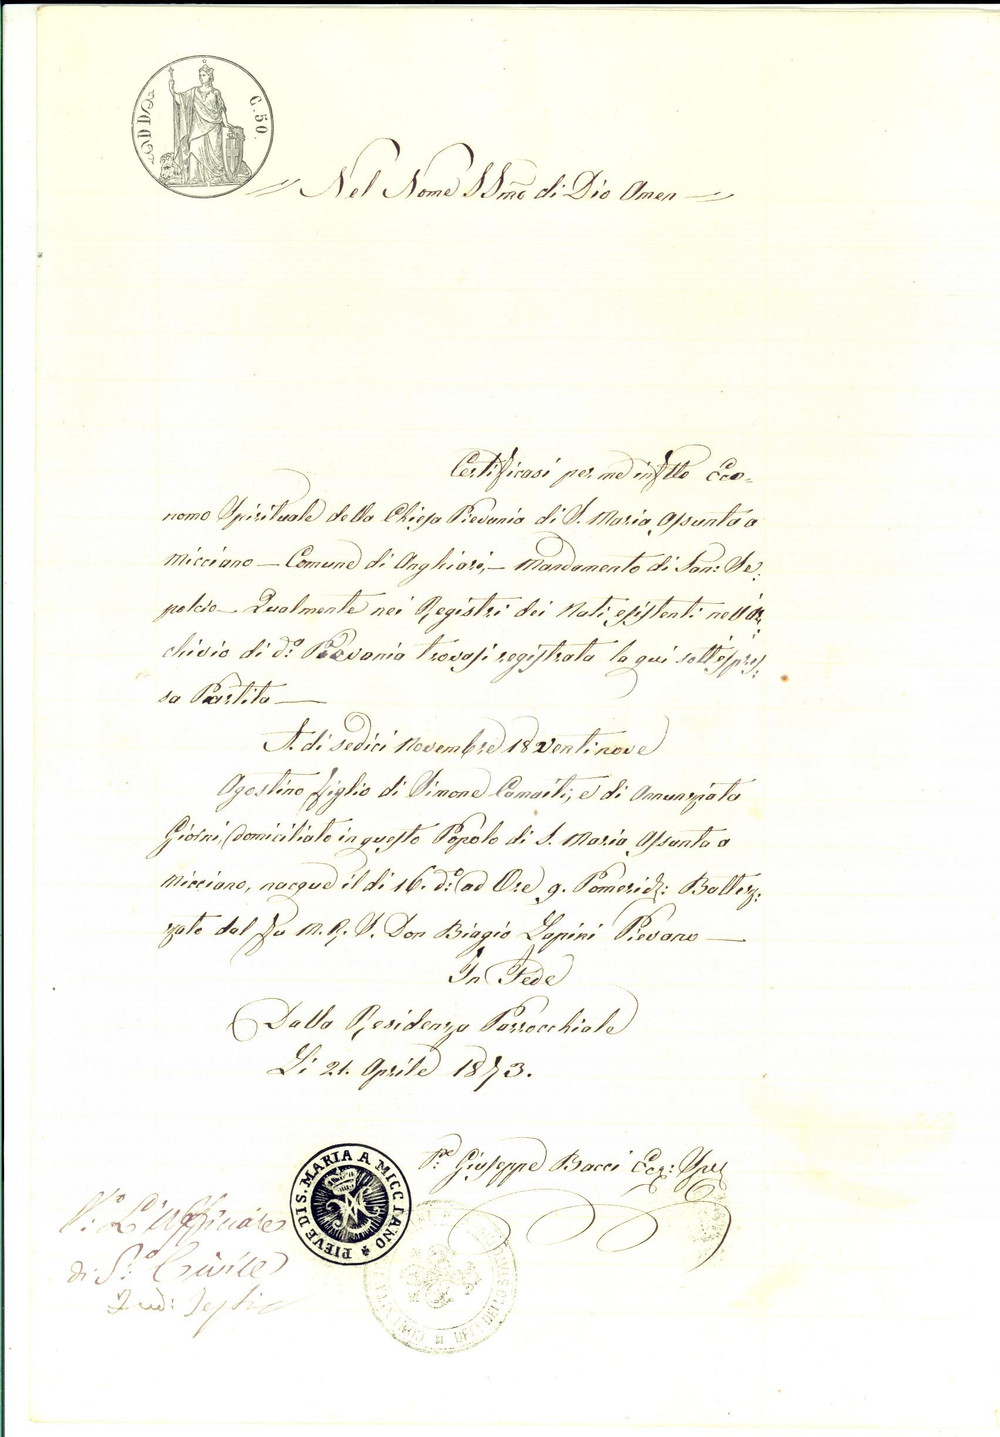 C. 50.
Nel Nome SSmo di Dio Amen
Certificasi per me infrtto Eco=
nomo Spirituale della Chiesa Pievania di S. Maria Assunta a
Micciano — Comune di Anghiari, — Mandamento di San: Se=
polcro — Qualmente nei Registri dei Nati esistenti nell'Ar=
chivio di do Pievania trovasi registrata la qui sott'espres=
sa Partita —
A. di sedici Novembre 18ventinove
Agostino figlio di Simone Camaiti, e di Annunziata
Giorni, domiciliato in questo Popolo di S. Maria Assunta a
Micciano, nacque il di 16. do ad Ore 9. Pomerid: Battez=
zato dal fu M. R. S. Don Biagio Lapini Pievano —
In Fede
Dalla Residenza Parrocchiale
Li 21. Aprile 1873.
Pe Giuseppe Bacci Eco: Spir
PIEVE DI S. MARIA A MICCIANO
Vo L'Ufficiale
di So Civile
DELLO STATO